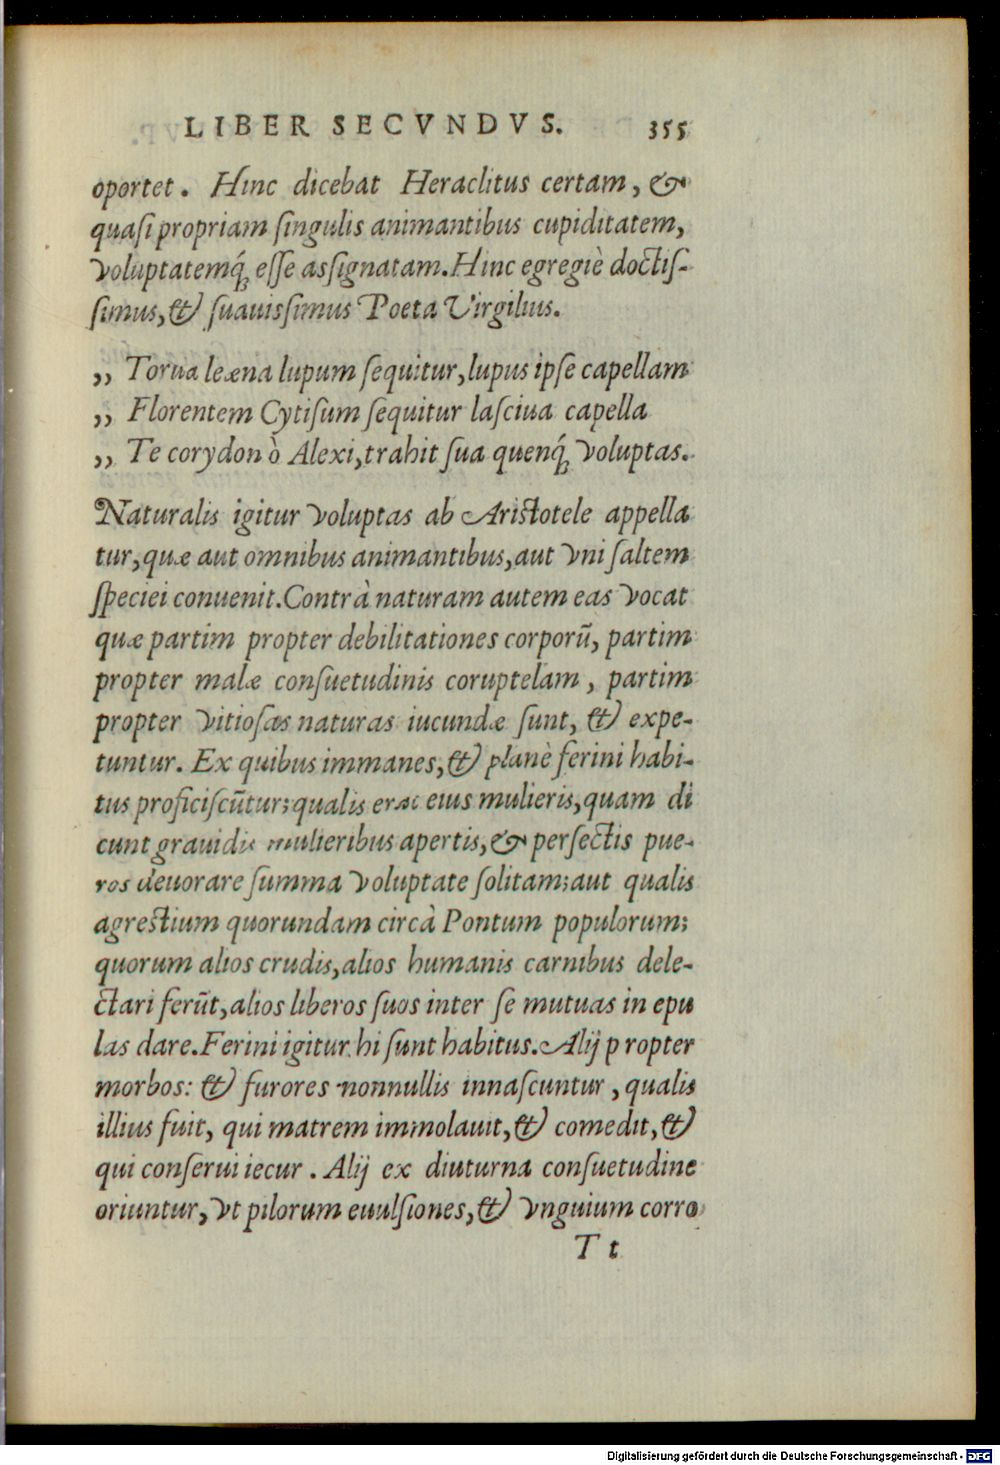 LIBER SECVNDVS. 355
oportet. Hinc dicebat Heraclitus certam, &
quaſi propriam ſingulis animantibus cupiditatem,
voluptatemq́; eſſe aſsignatam. Hinc egregiè doctiſ-
ſimus, & ſuauiſsimus Poeta Virgilius.
„ Torua leæna lupum ſequitur, lupus ipſe capellam
„ Florentem Cytiſum ſequitur laſciua capella
„ Te corydon ò Alexi, trahit ſua quenq́; voluptas.
Naturalis igitur voluptas ab Ariſtotele appella
tur, quæ aut omnibus animantibus, aut vni ſaltem
ſpeciei conuenit. Contrà naturam autem eas vocat
quæ partim propter debilitationes corporū, partim
propter malæ conſuetudinis coruptelam, partim
propter vitioſas naturas iucundæ ſunt, & expe-
tuntur. Ex quibus immanes, & planè ferini habi-
tus proficiſcūtur; qualis erat eius mulieris, quam di
cunt grauidis mulieribus apertis, & perſectis pue-
ros deuorare ſumma voluptate ſolitam; aut qualis
agreſtium quorundam circà Pontum populorum;
quorum alios crudis, alios humanis carnibus dele-
ctari ferūt, alios liberos ſuos inter ſe mutuas in epu
las dare. Ferini igitur hi ſunt habitus. Alij propter
morbos: & furores nonnullis innaſcuntur, qualis
illius fuit, qui matrem immolauit, & comedit, &
qui conſerui iecur. Alij ex diuturna conſuetudine
oriuntur, vt pilorum euulſiones, & vnguium corro
T t
Digitalisierung gefördert durch die Deutsche Forschungsgemeinschaft - DFG